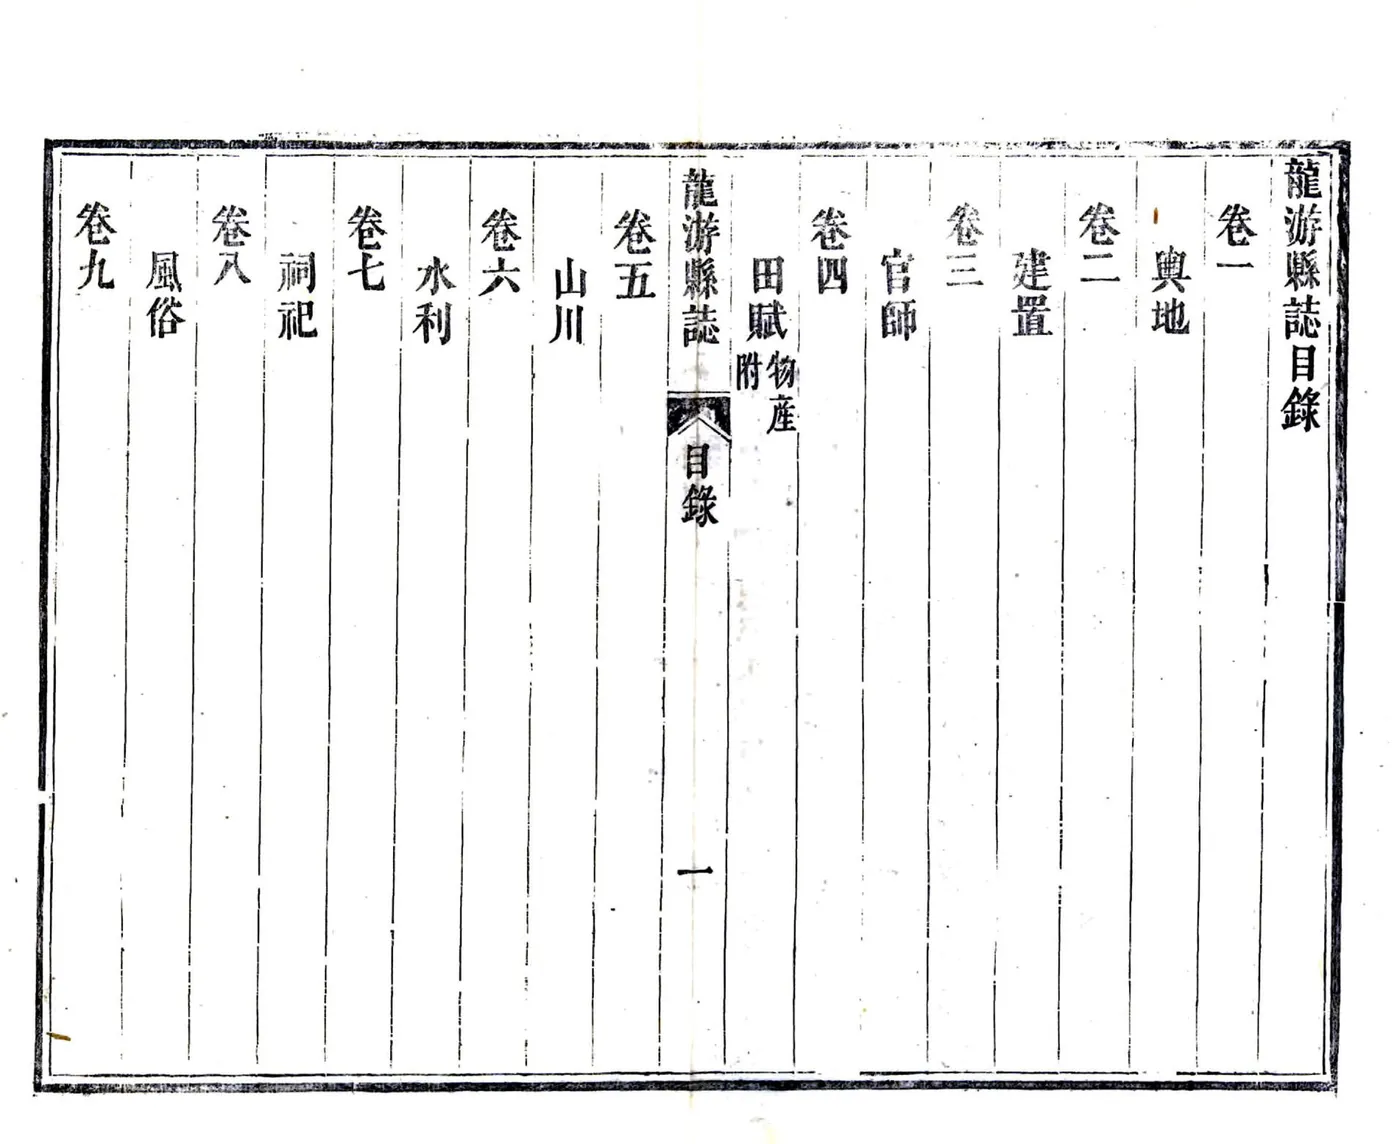 龍游縣誌目錄
卷一
輿地
卷二
建置
卷三
官師
卷四
田賦物産附
龍游縣誌 目錄 一
卷五
山川
卷六
水利
卷七
祠祀
卷八
風俗
卷九